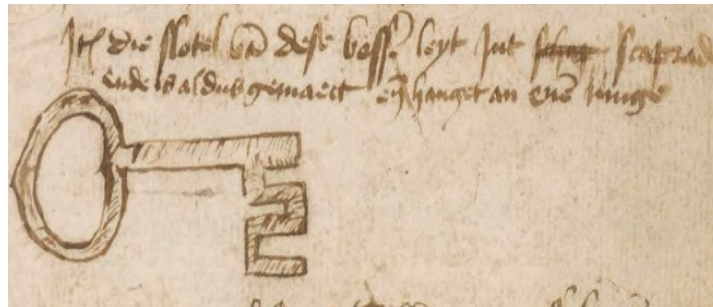 Itē die slotel vā dese boss̄ leyt int scaprade
ende is aldus gemaect eñ hanget an enē ringe